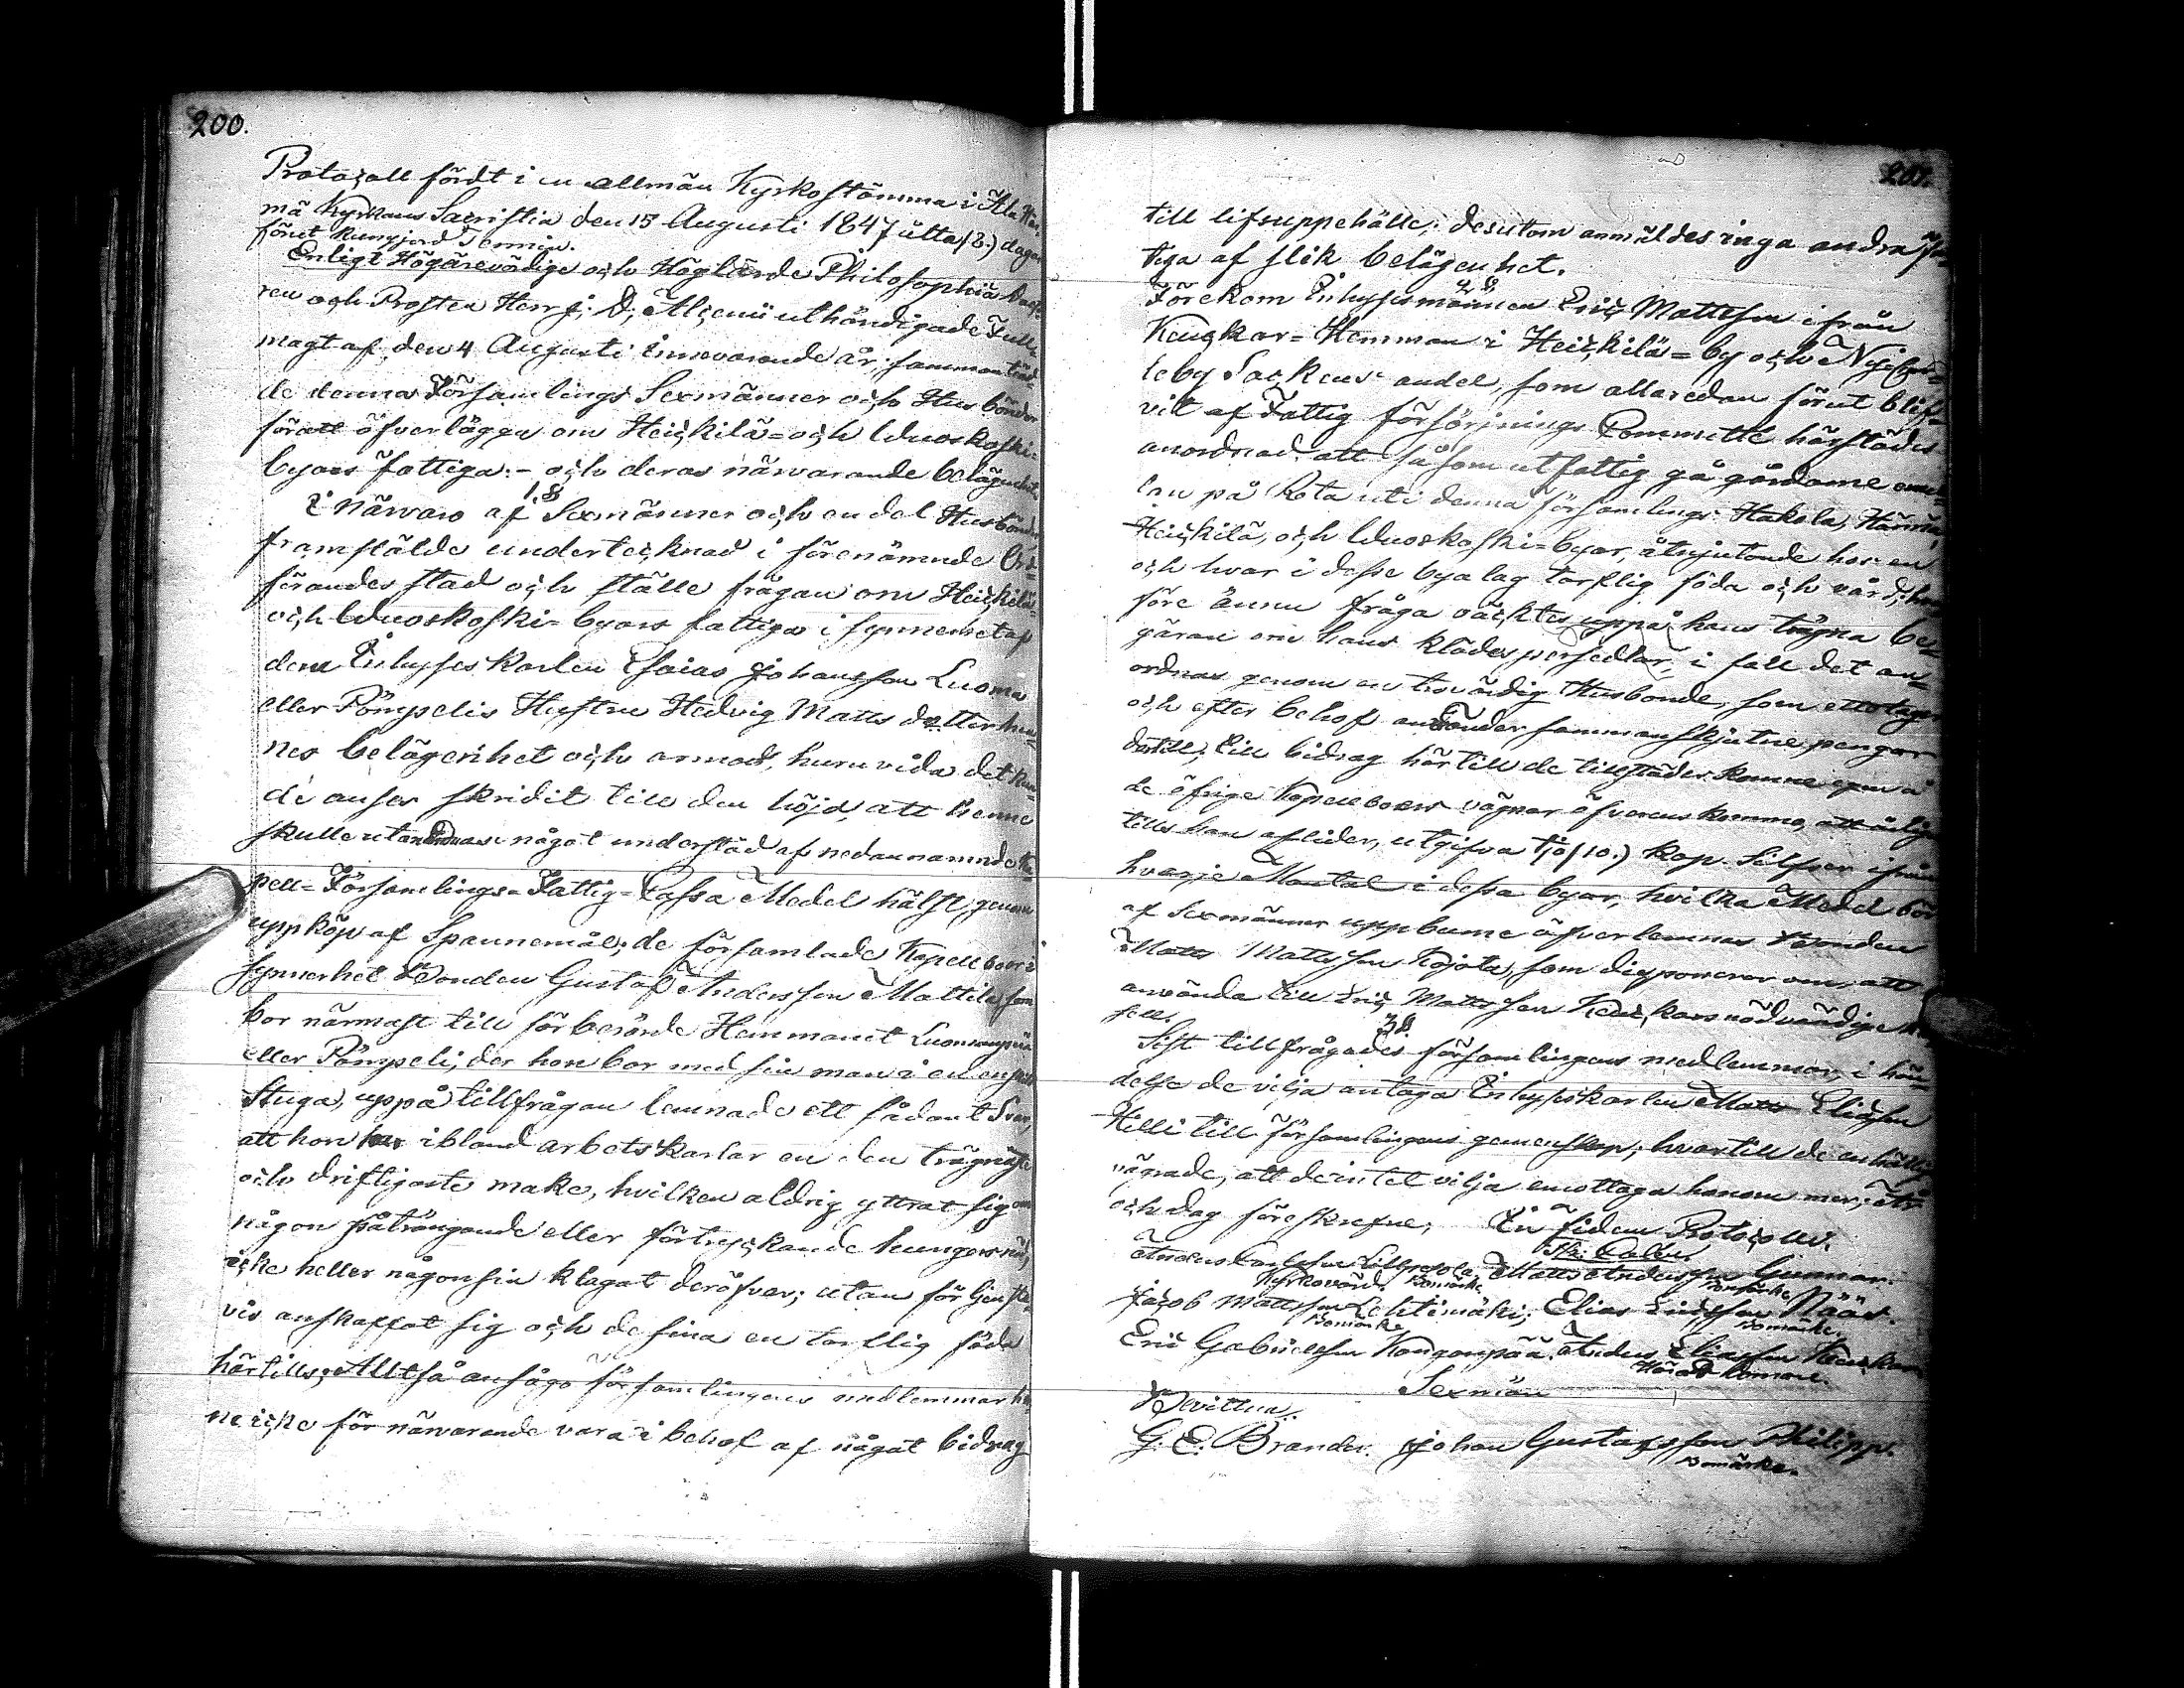 200.
Protocoll fördt i en allmän Kyrkostämma i Ala Här-
mä Kyrkans Sacristia den 15 Augusti 1847 åtta (8.) dagar
förut kungjord Termin.
Enligt Högärevördige och Höglärde Philosophiæ
ren och Prosten Herr J. D. Alcenii uthändigade Full-
magt af den 4 Augusti innevarande år; sammanträd-
de denna Församlings Sexmänner och Husbönder
föratt öfverlägga om Heickilä= och Wuoskoski=
byars fattiga:- och deras närvarande belägenhet
1. §
i närvaro af Sexmänner och en del Husbönder
framstälde undertecknad i förenämnde Ord-
förandes stad och ställe frågan om Heickilä=
och Wuoskoski= byars fattiga i synnerhet af
dem Inhysseskarlen Esaias Johansson Luoma
eller Pömpelis Hustru Hedvig Matts dotter hen-
nes belägenhet och armod, huruvida det kun-
de anses skridit till den höjd, att henne
skulle utanordnas något understöd af nedannämnde Ka-
pell= Församlings= Fattig= Cassa Medel hälst, genom
uppköp af Spannemål; de församlade Kapellboer i
synnerhet Bonden Gustaf Andersson Mattila, som
bor närmast till förberörde Hemmanet Luomanpää
eller Pömpeli, der hon bor med sin man i en enskild
Stuga, uppå tillfrågan lemnade ett sådant Svar,
att hon har ibland arbetskarlar en den trägnaste
och driftigaste make, hvilken aldrig yttrat sig om
någon påträngande eller förtryckande hungersnöd,
icke heller någonsin klagat deröfver; utan förtjenst-
vis anskaffat sig och de sina en torftlig föda
härtills; Alltså ansågo församlingens medlemmar hen-
ne icke för närvarande vara i behof af något bidrag
201.
till lifsuppehälle; desutom anmäldes inga andra fat-
tiga af slik belägenhet.
2. §
Förekom Inhysesmannen Eric Mattsson ifrån
Keuckar= Hemman i Heickilä= by och
leby Sackens andel, som allaredan förut blif-
vit af Fattig försörjnings Committé härstädes
anordnad att såsom utfattig gå gårdarne
lan på Rota uti denna församlings Hakola, Härmä,
Heickilä, och Wuoskoski= byar, åtnjutande hos en
och hvar i desse byalag torftlig föda och vård;
före ännu fråga väcktes uppå hans trägna be-
gäran om hans klädespersedlar, i fall det an-
ordnas genom en trovärdig Husbonde, som
och efter behof använder sammanskjutne pengar
dertill; till bidrag härtill de tillstädes komne egna å
de öfrige Kapellboers vägnar öfverens kommo, att årligen
tills han aflider, utgifva tjo (10.) kop. Silfver ifrån
hvarje Mantal i dessa byar, hvilka Medel bör
af Sexmänner uppburne öfverlemnas Bonden
Matts Mattsson Kojola, som disponerar om, att
använda till Eric Mattsson Keuckars nödvändige
fell.
3 §.
Sist tillfrågades församlingens medlemmar, i hän-
delse de vilja antaga Inhyseskarlen Matts Eliasson
Hilli till församlingens gemenskap; hvartill de enhälligt
vägrade, att de intet vilja emottaga honom mer; År
och dag föreskrefne; In fidem Protocolli.
Anders Carlsson Lillpesola, Matts Andersson Gunnar.
Kyrkovärd. Bomärke Bomärke
Jacob Mattsson Lehtimäki; Elias Ericsson Näås.
Bomärke Bomärke.
Eric Gabrielsson Kangonpää. Anders Eliasson Keuckar
Härads Domare.
Sexmän
Bevittna..
G. E. Brander. Johan Gustafsson Philipp.
Bomärke.